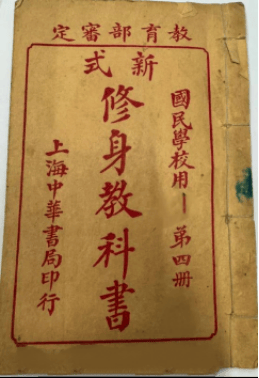 教育部審定
新式
國民學校用 第四册
修身教科書
上海中華書局印行